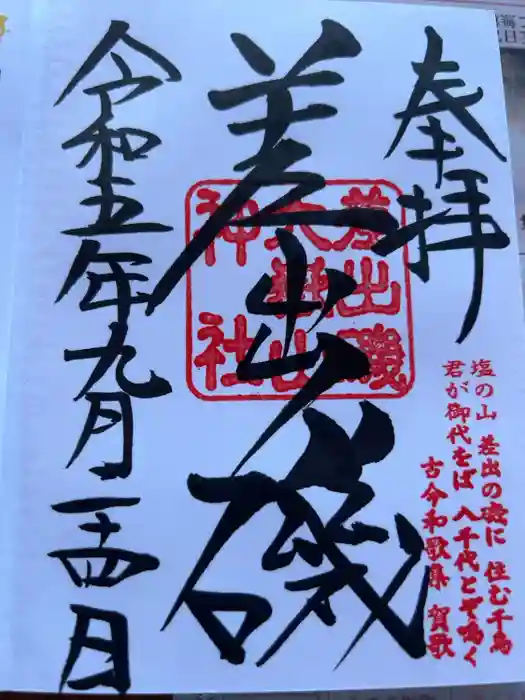 奉拝
差出磯
差出磯
大嶽山
神社
令和五年九月二十四日
塩の山 差出の磯に 住む千鳥
君が御代をば 八千代とぞ鳴く
古今和歌集 賀歌